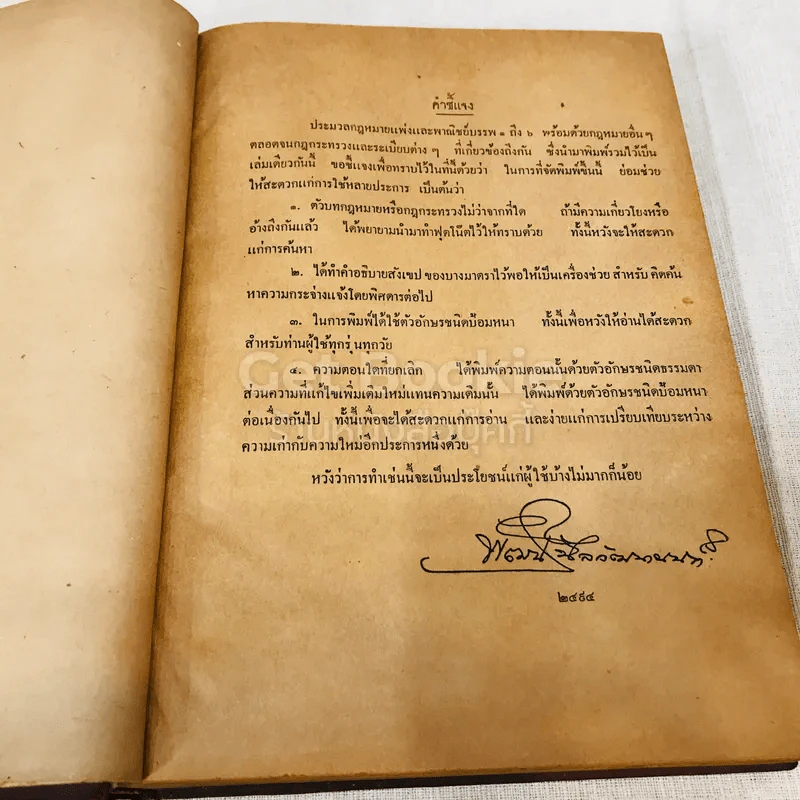 คำชี้แจง
ประมวลกฎหมายแพ่งและพาณิชย์บรรพ ๑ ถึง ๖ พร้อมด้วยกฎหมายอื่น ๆ
ตลอดจนกฎกระทรวงและระเบียบต่าง ๆ ที่เกี่ยวข้องถึงกัน ซึ่งนำมาพิมพ์รวมไว้เป็น
เล่มเดียวกันนี้ ขอชี้แจงเพื่อทราบไว้ในที่นี้ด้วยว่า ในการที่จัดพิมพ์ขึ้นนี้ ย่อมช่วย
ให้สะดวกแก่การใช้หลายประการ เป็นต้นว่า
๑. ตัวบทกฎหมายหรือกฎกระทรวงไม่ว่าจากที่ใด ถ้ามีความเกี่ยวโยงหรือ
อ้างถึงกันแล้ว ได้พยายามนำมาทำฟุตโน๊ตไว้ให้ทราบด้วย ทั้งนี้หวังจะให้สะดวก
แก่การค้นหา
๒. ได้ทำคำอธิบายสังเขป ของบางมาตราไว้พอให้เป็นเครื่องช่วย สำหรับ คิดค้น
หาความกระจ่างแจ้งโดยพิศดารต่อไป
๓. ในการพิมพ์ได้ใช้ตัวอักษรชนิดป้อมหนา ทั้งนี้เพื่อหวังให้อ่านได้สะดวก
สำหรับท่านผู้ใช้ทุกรุ่นทุกวัย
๔. ความตอนใดที่ยกเลิก ได้พิมพ์ความตอนนั้นด้วยตัวอักษรชนิดธรรมดา
ส่วนความที่แก้ไขเพิ่มเติมใหม่แทนความเดิมนั้น ได้พิมพ์ด้วยตัวอักษรชนิดป้อมหนา
ต่อเนื่องกันไป ทั้งนี้เพื่อจะได้สะดวกแก่การอ่าน และง่ายแก่การเปรียบเทียบระหว่าง
ความเก่ากับความใหม่อีกประการหนึ่งด้วย
หวังว่าการทำเช่นนี้จะเป็นประโยชน์แก่ผู้ใช้บ้างไม่มากก็น้อย
๒๔๙๔